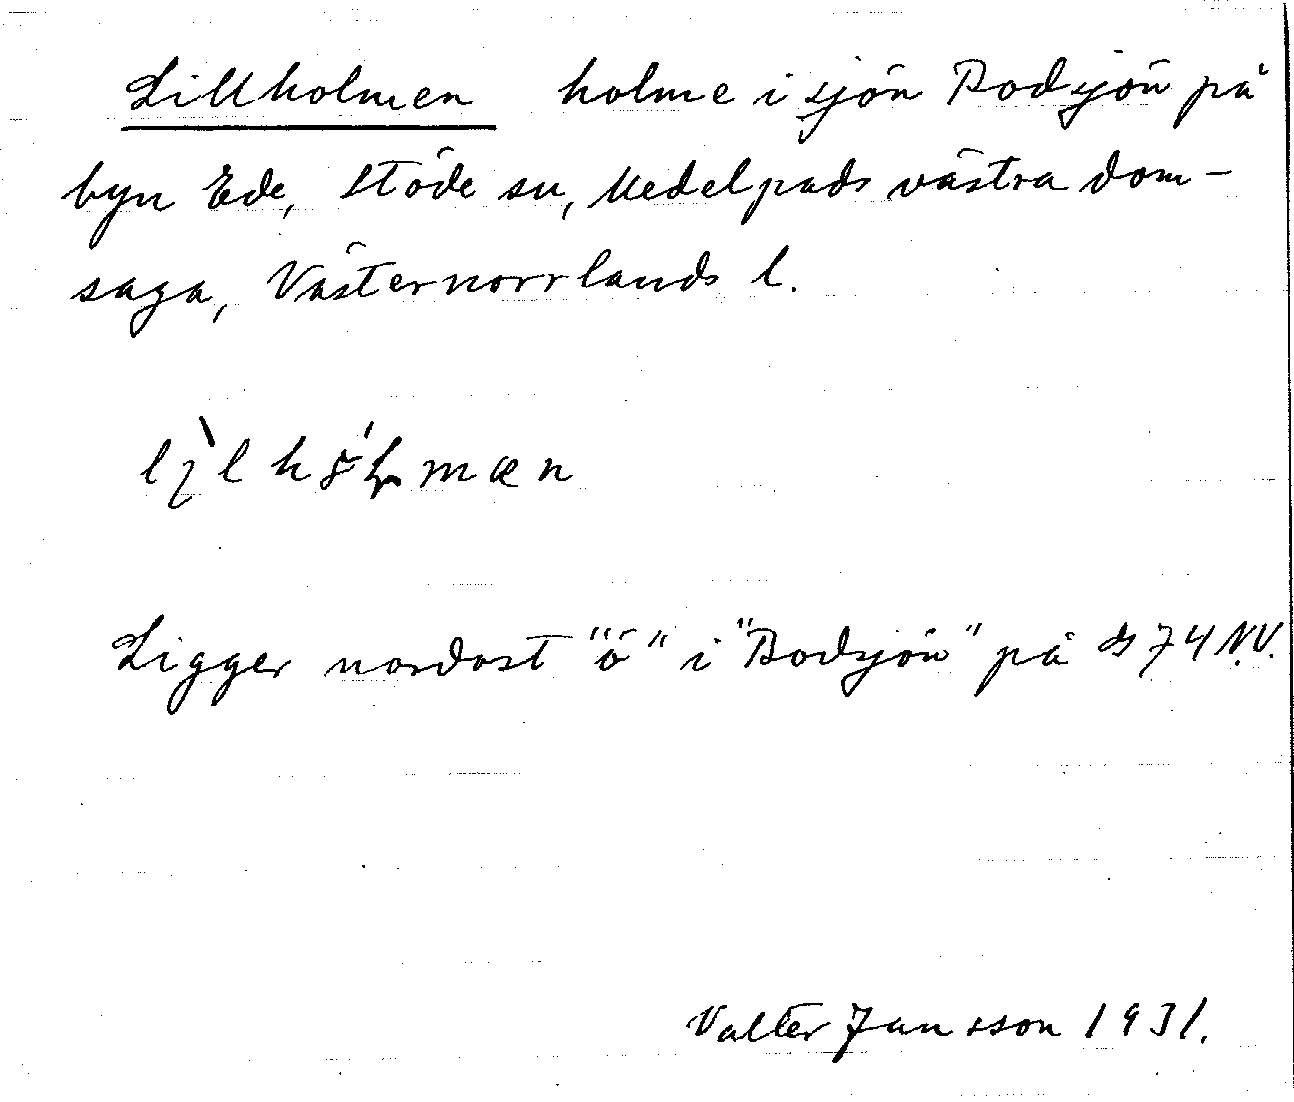 Lillholmen holme i sjön Bodsjön på
byn Ede, Stöde sn, Medelpads västra dom-
saga, Västernorrlands l.
Ligger nordost "ö" i "Bodsjön" på 74 N.V.
Valter Jansson 1931.